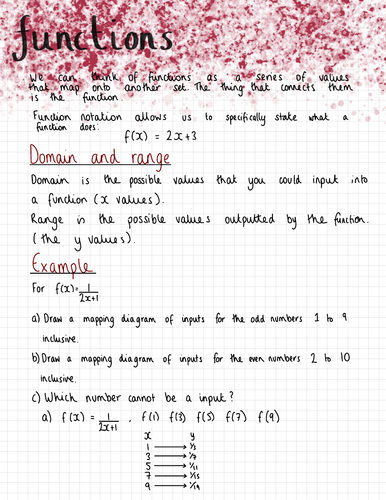 functions
We can think of functions as a series of values
that map onto another set. The thing that connects them
is the function.
Function notation allows us to specifically state what a
function does:
f(x) = 2x+3
Domain and range
Domain is the possible values that you could input into
a function (x values).
Range is the possible values outputted by the function.
(the y values).
Example
For f(x)=1/2x+1
a) Draw a mapping diagram of inputs for the odd numbers 1 to 9
inclusive.
b) Draw a mapping diagram of inputs for the even numbers 2 to 10
inclusive.
c) Which number cannot be a input?
a) f(x) = 1/2x+1 , f(1) f(3) f(5) f(7) f(9)
x y
1 → 1/3
3 → 1/7
5 → 1/11
7 → 1/15
9 → 1/19